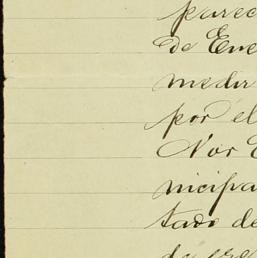 parec
de Ene
medir
por el
Nor E
nicipa
tado de